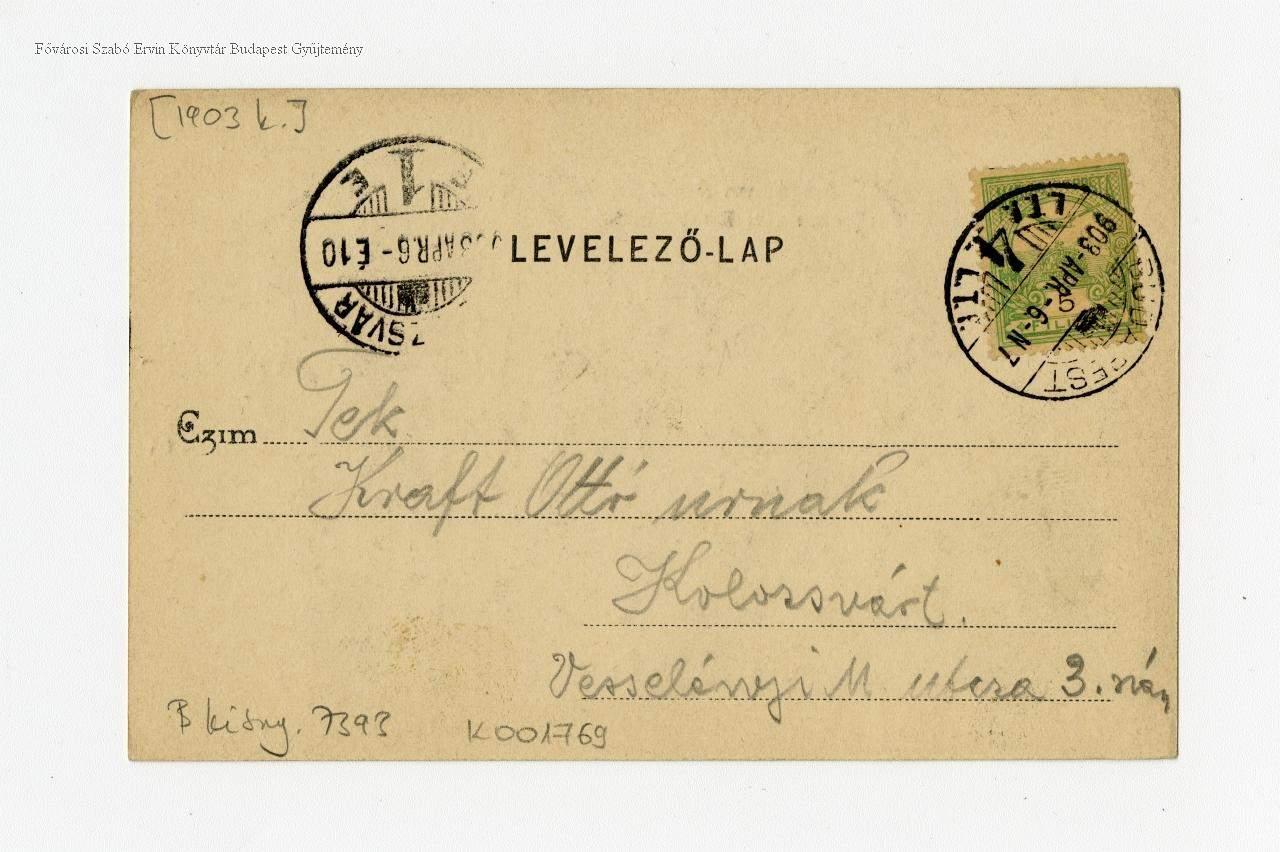 Fővárosi Szabó Ervin Könyvtár Budapest Gyűjtemény
[1903 k.]
1
903 APR.6-É.10
ZSVÁR
LEVELEZŐ-LAP
903-APR.-6-N7
5
BUDAPEST
Czim Tek
Kraft Ottó urnak
Kolozsvárt.
Vesselényi M utcza 3. szám
B kiány. 7393
K001769